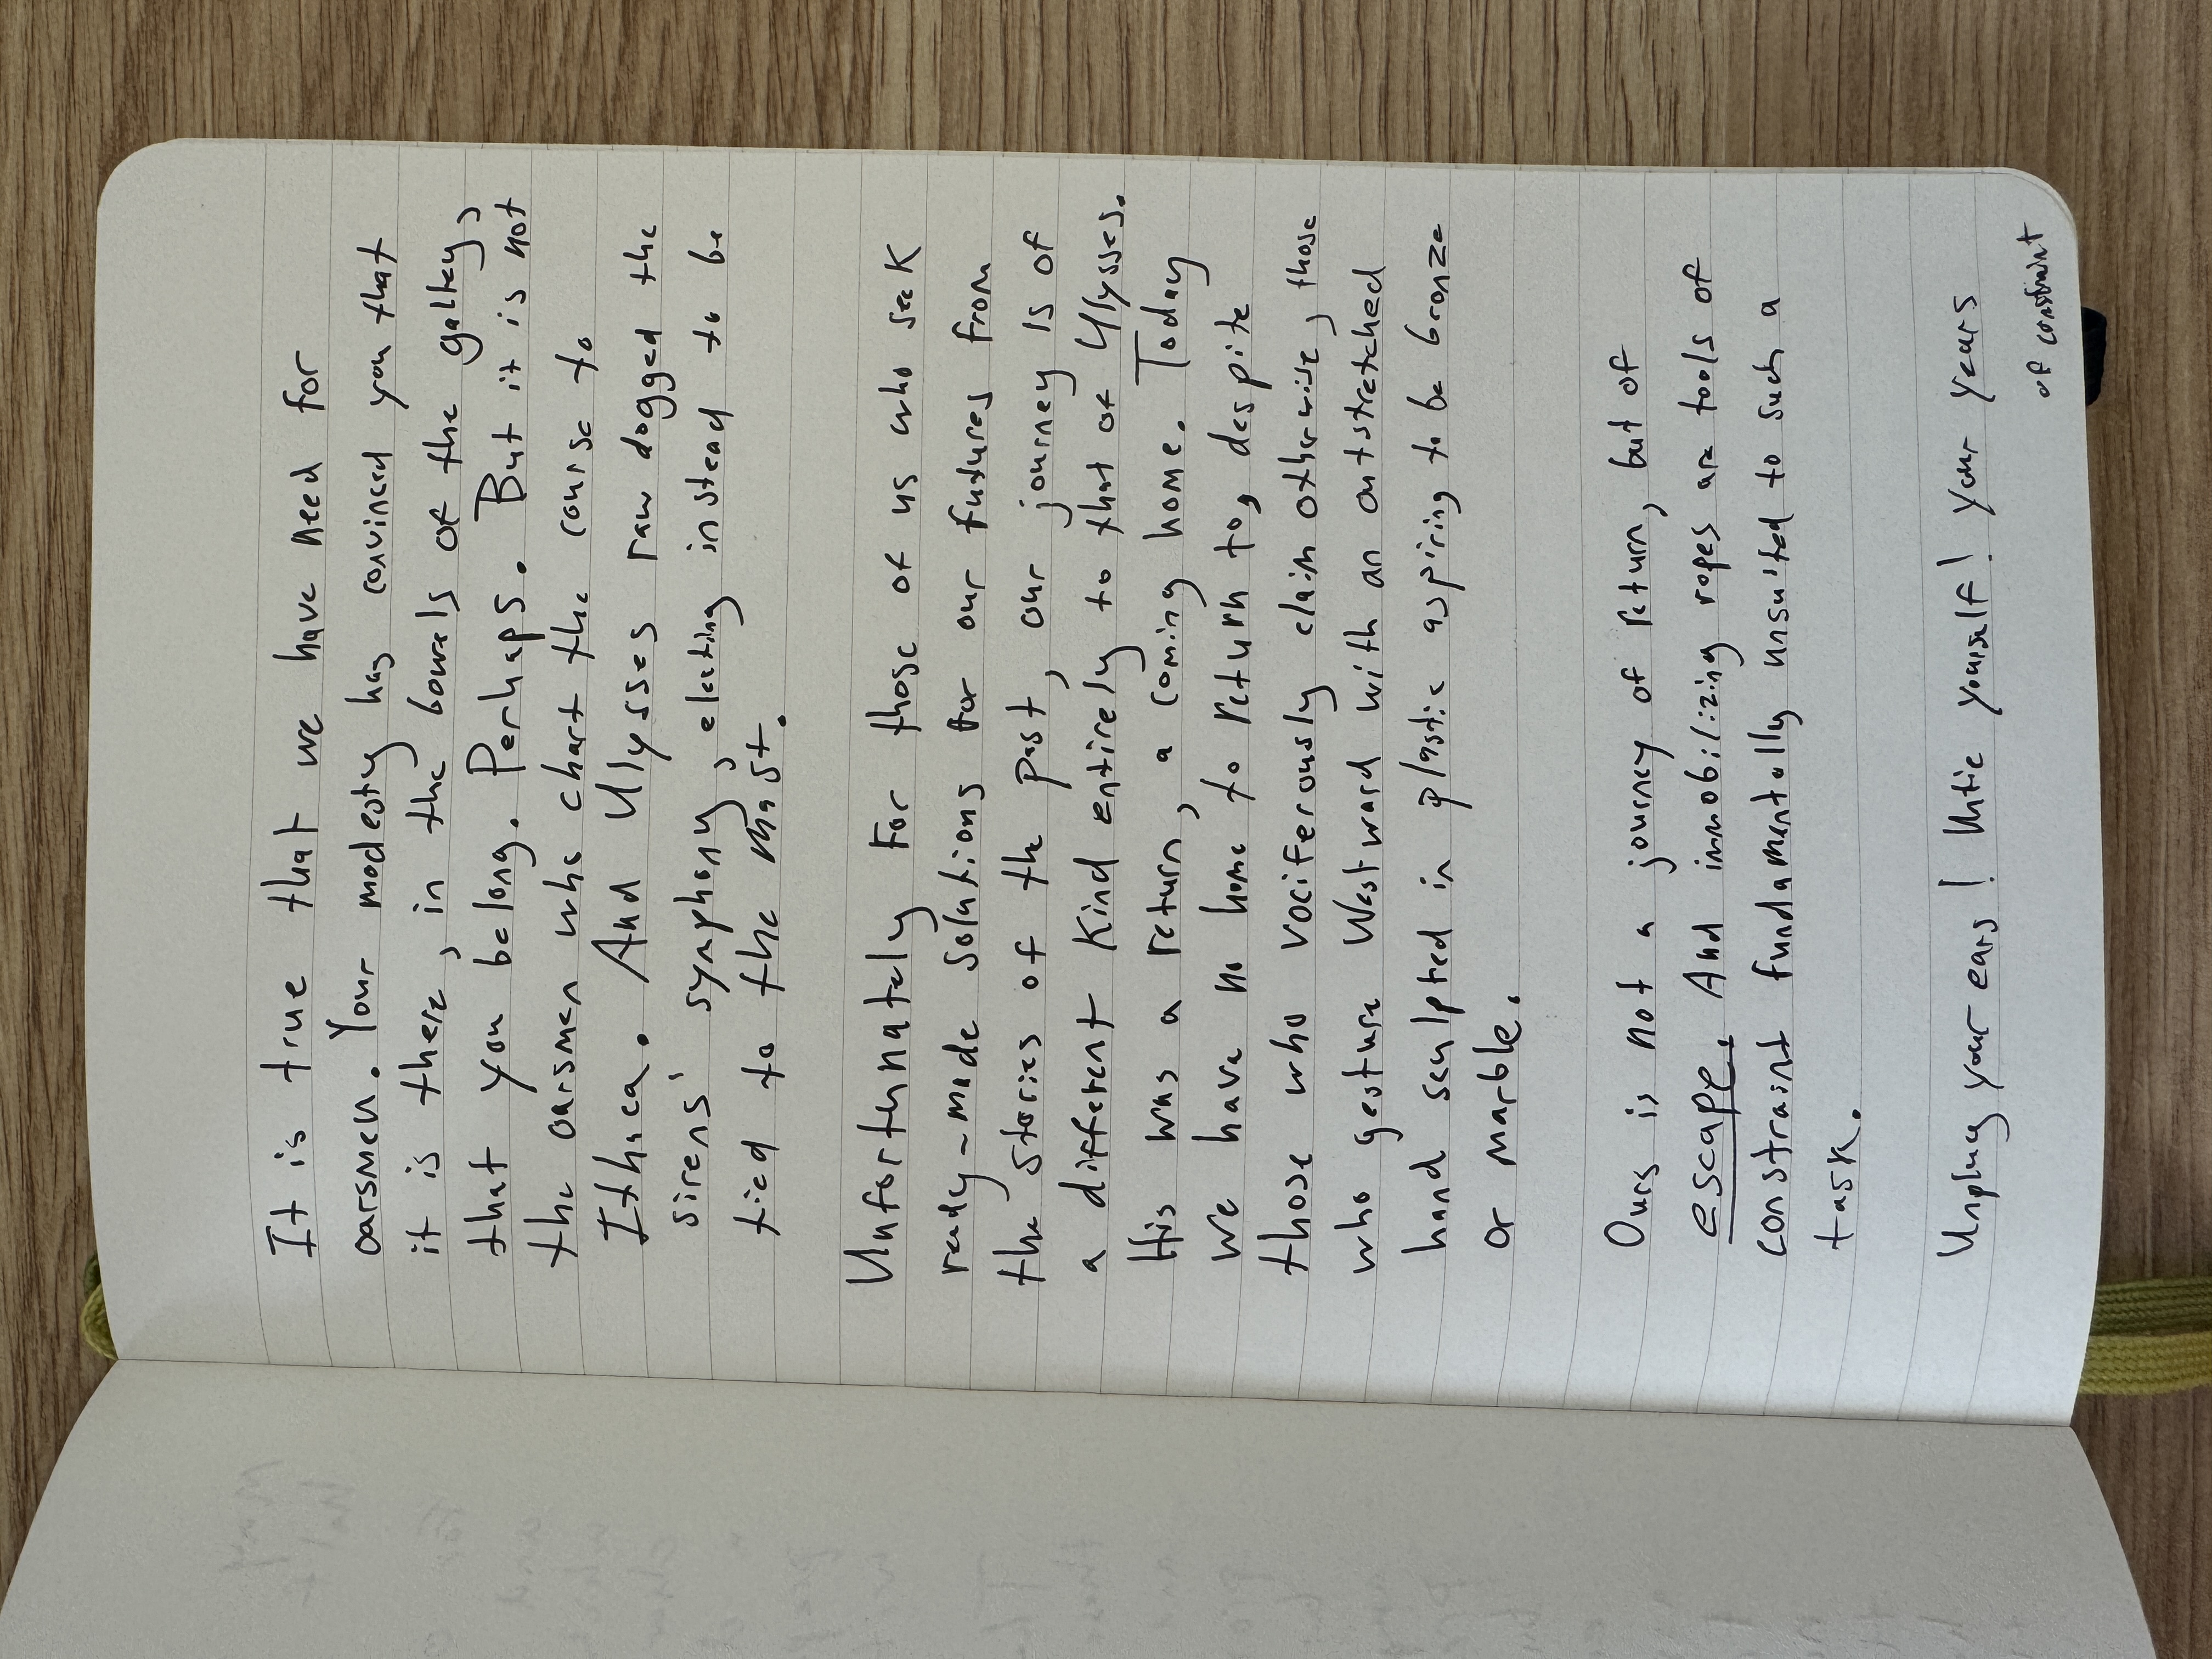 It is true that we have need for
oarsmen. Your modesty has convinced you that
it is there, in the bowels of the galley,
that you belong. Perhaps. But it is not
the oarsmen who chart the course to
Ithica. And Ulysses raw dogged the
sirens' symphony, electing instead to be
tied to the mast.
Unfortunately for those of us who seek
ready-made solutions for our futures from
the stories of the past, our journey is of
a different kind entirely to that of Ulysses.
His was a return, a coming home. Today
we have no home to return to, despite
those who vociferously claim otherwise, those
who gesture Westward with an outstretched
hand sculpted in plastic aspiring to be bronze
or marble.
Ours is not a journey of return, but of
escape. And immobilizing ropes are tools of
constraint fundamentally unsuited to such a
task.
Unplug your ears! Untie yourself! Your years
of constraint